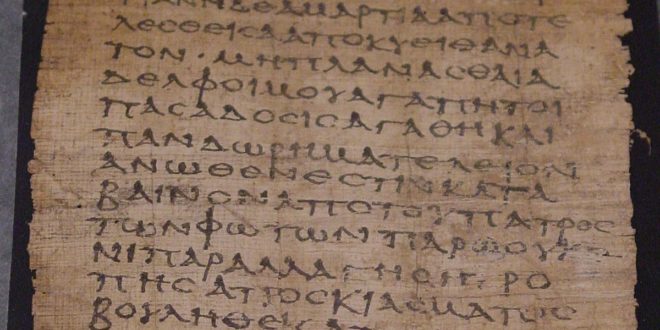 ΤΙΑΝΗΔΕΑΜΑΡΤΙΑΑΠΟΤΕ
ΛΕϹΘΕΙϹΑΑΠΟΚΥΕΙΘΑΝΑ
ΤΟΝ · ΜΗΠΛΑΝΑϹΘΑΙΑ
ΔΕΛΦΟΙΜΟΥΑΓΑΠΗΤΟΙ
ΠΑϹΑΔΟϹΙϹΑΓΑΘΗΚΑΙ
ΠΑΝΔΩΡΗΜΑΤΕΛΕΙΟΝ
ΑΝΩΘΕΝΕϹΤΙΝΚΑΤΑ
ΒΑΙΝΟΝΑΠΟΤΟΥΠΑΤΡΟϹ
ΤΩΝΦΩΤΩΝΠΑΡΩΟΥΚΕ
ΝΙΠΑΡΑΛΛΑΓΗϹΗΤΡΟ
ΠΗϹΑΠΟϹΚΙΑϹΜΑΤΟϹ
ΒΟΥΛΗΘΕΙϹ